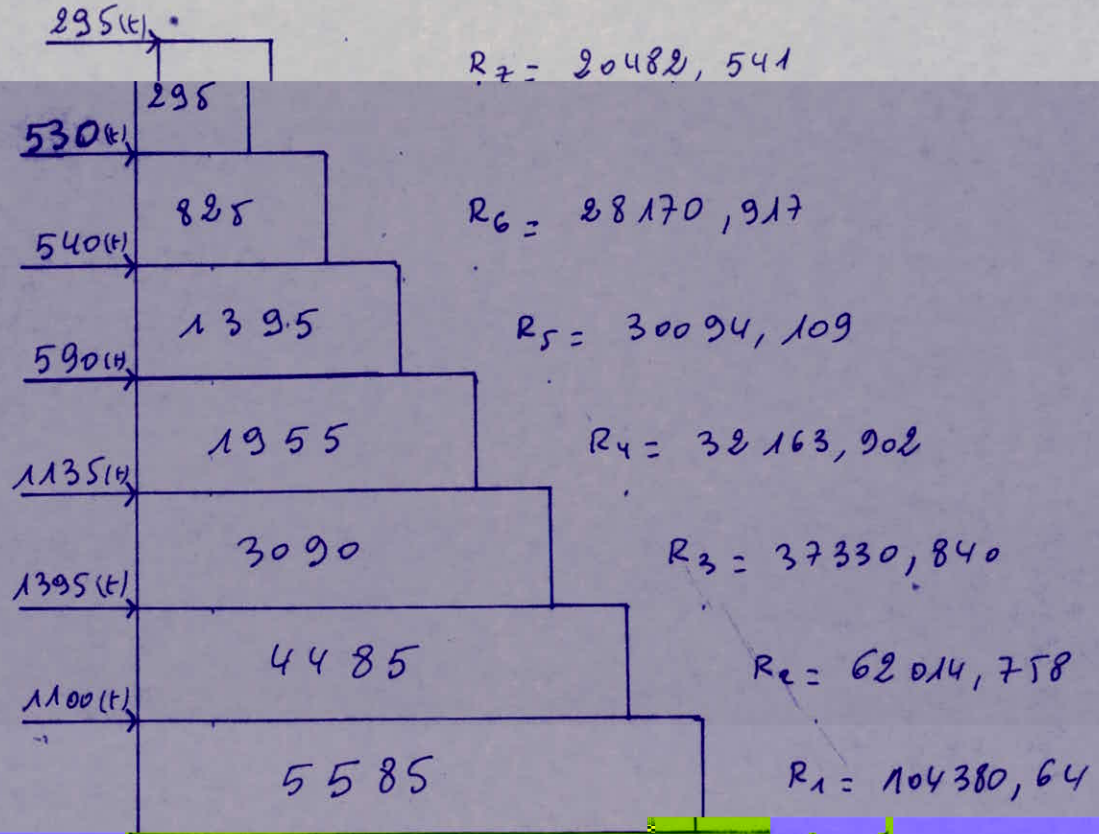 295(t)
R7 = 20482, 541
295
530(t)
825
R6 = 28170, 917
540(t)
139.5
R5 = 30094, 109
590(t)
1955
R4 = 32163, 902
1135(t)
3090
R3 = 37330, 840
1395(t)
4485
R2 = 62014, 758
1100(t)
5585
R1 = 104380, 64